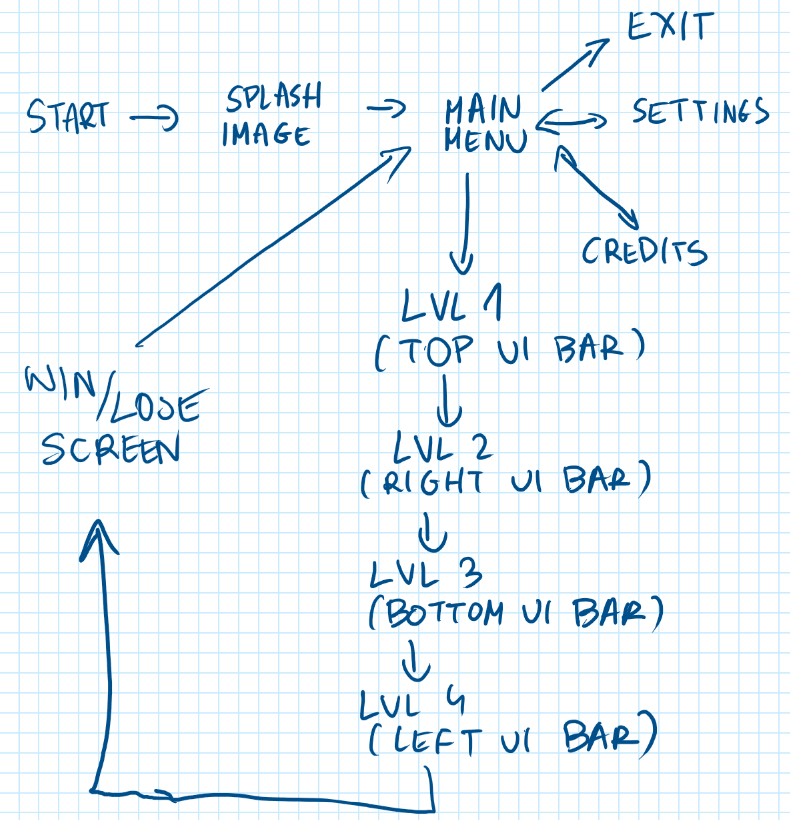 START
SPLASH
IMAGE
MAIN
MENU
EXIT
SETTINGS
CREDITS
LVL 1
(TOP UI BAR)
LVL 2
(RIGHT UI BAR)
LVL 3
(BOTTOM UI BAR)
LVL 4
(LEFT UI BAR)
WIN/LOSE
SCREEN